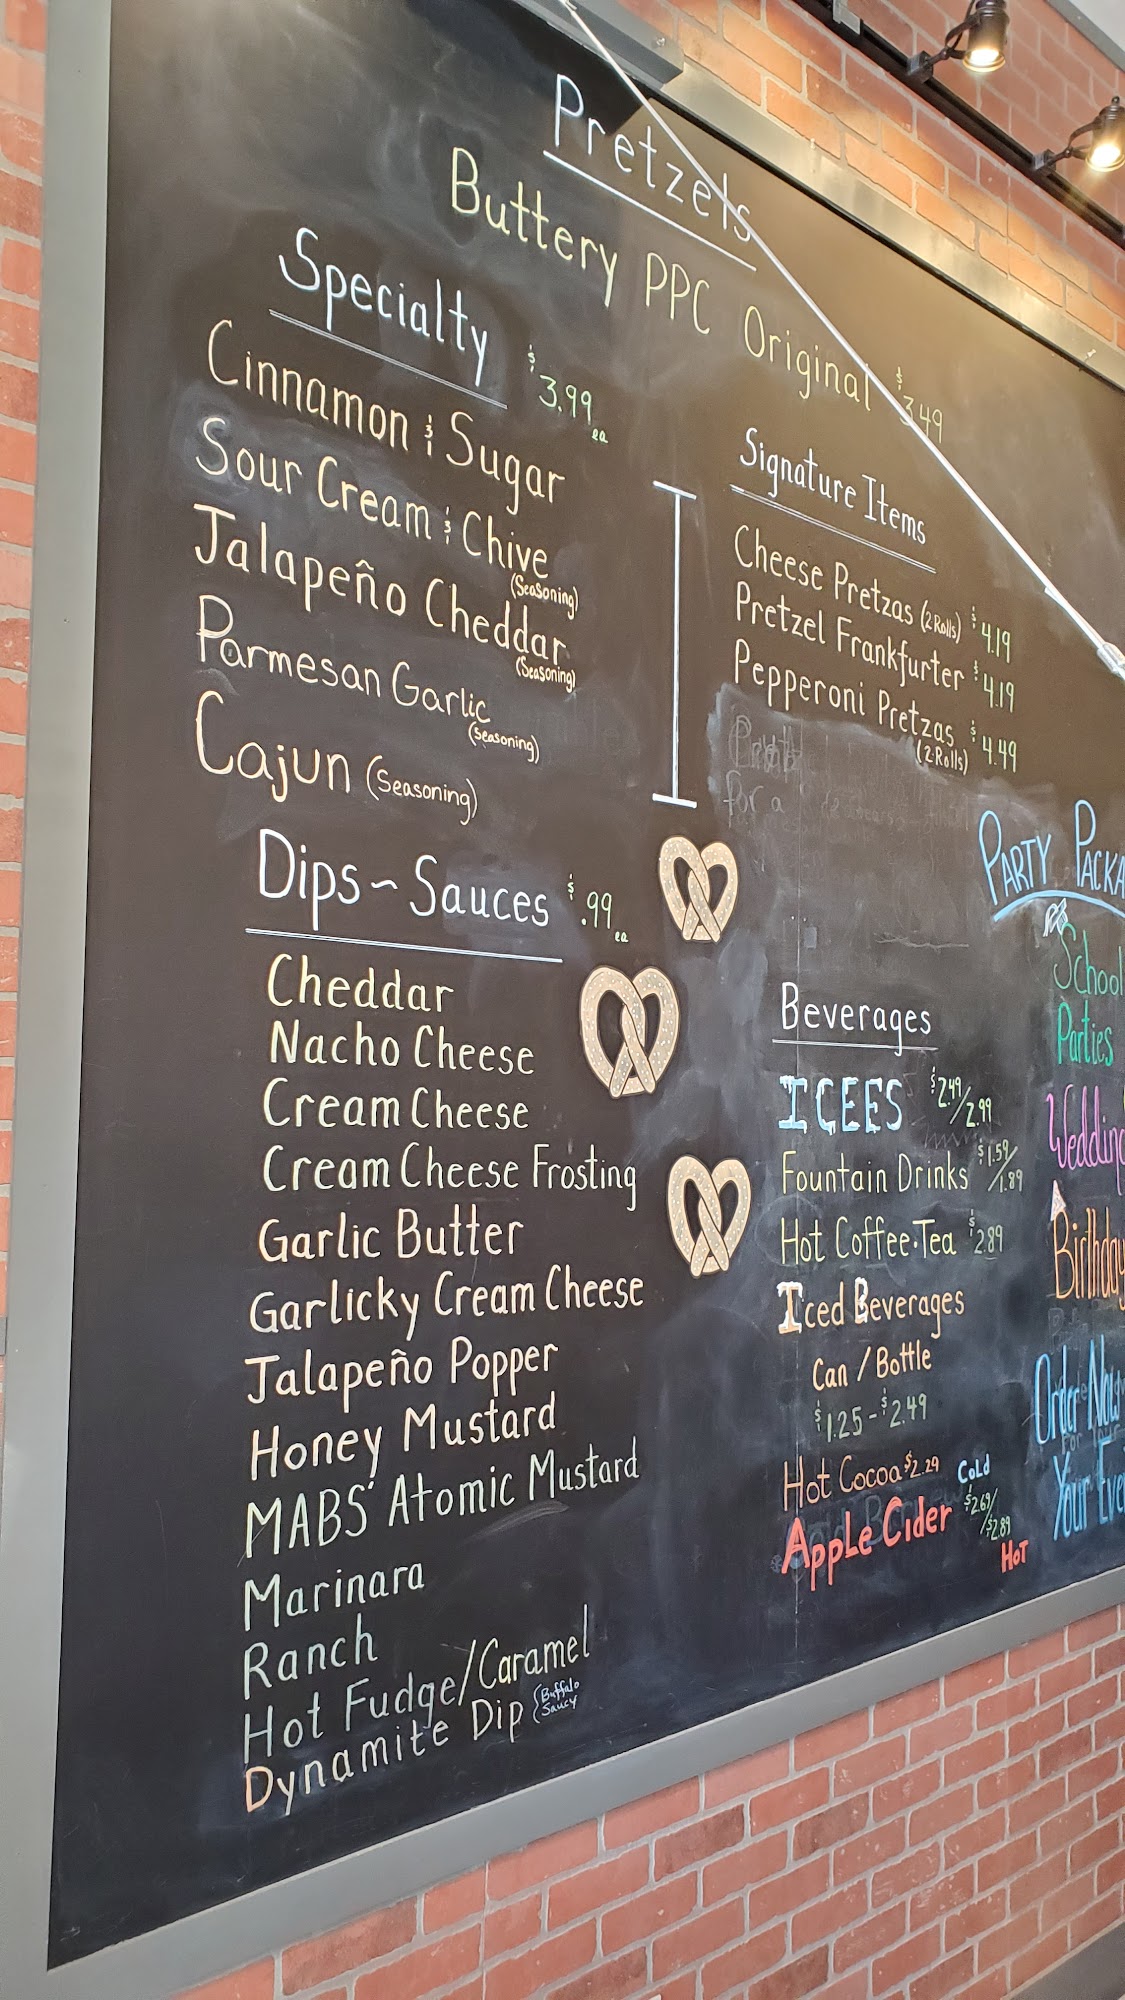 Pretzels
Buttery PPC Original $3.49
Specialty $3.99 ea
Cinnamon & Sugar
Sour Cream & Chive
(Seasoning)
Jalapeño Cheddar
(Seasoning)
Parmesan Garlic
(Seasoning)
Cajun (Seasoning)
Dips ~ Sauces $.99 ea
Cheddar
Nacho Cheese
Cream Cheese
Cream Cheese Frosting
Garlic Butter
Garlicky Cream Cheese
Jalapeño Popper
Honey Mustard
MABS' Atomic Mustard
Marinara
Ranch
Hot Fudge/Caramel
Dynamite Dip (Buffalo
Saucy
Signature Items
Cheese Pretzas (2 Rolls) $4.19
Pretzel Frankfurter $4.19
Pepperoni Pretzas $4.49
(2 Rolls)
for a
Beverages
ICEES $2.49/2.99
Fountain Drinks $1.59/1.89
Hot Coffee·Tea $2.89
Iced Beverages
Can / Bottle
$1.25 - $2.49
Hot Cocoa $2.29
Cold
Apple Cider $2.69/$2.89
Hot
Party Packa
School
Parties
Wedding
Birthday
Order Now
For Your
Your Eve